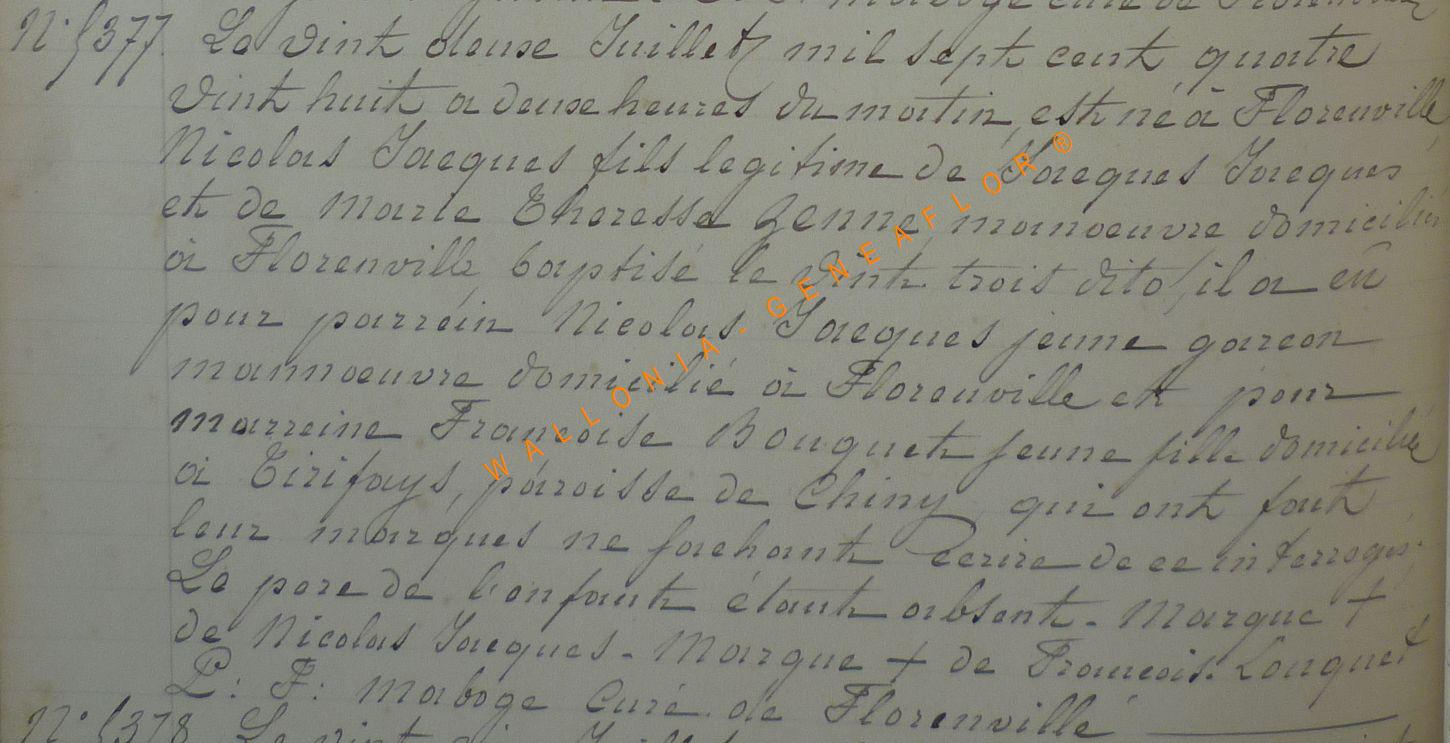 maboge curé de Florenville
N° 5377. Le vint deuxe Juillet mil sept cent quatre
vint huit a deuxe heures du matin, est né à Florenville
Nicolas Jacques fils legitime de Jacques Jacques
et de Marie Theresse Zenne, manoeuvre domicilié
à Florenville, baptisé le vint trois dito, il a eû
pour parréin Nicolas Jacques jeune garcon
mannoeuvre domicilié à Florenville et pour
marreine Francoise Bouquet jeune fille domicilié
à Tirifays, paroisse de Chiny, qui ont fait
leur marques ne sachant écrire de ce interrogés.
Le pere de l'enfant étant absent. Marque +
de Nicolas Jacques - Marque + de Francois. Louquet
P: F: Maboge Curé de Florenville
N° 5378 Le vint
WALLONIA - GENEAFLOR ®